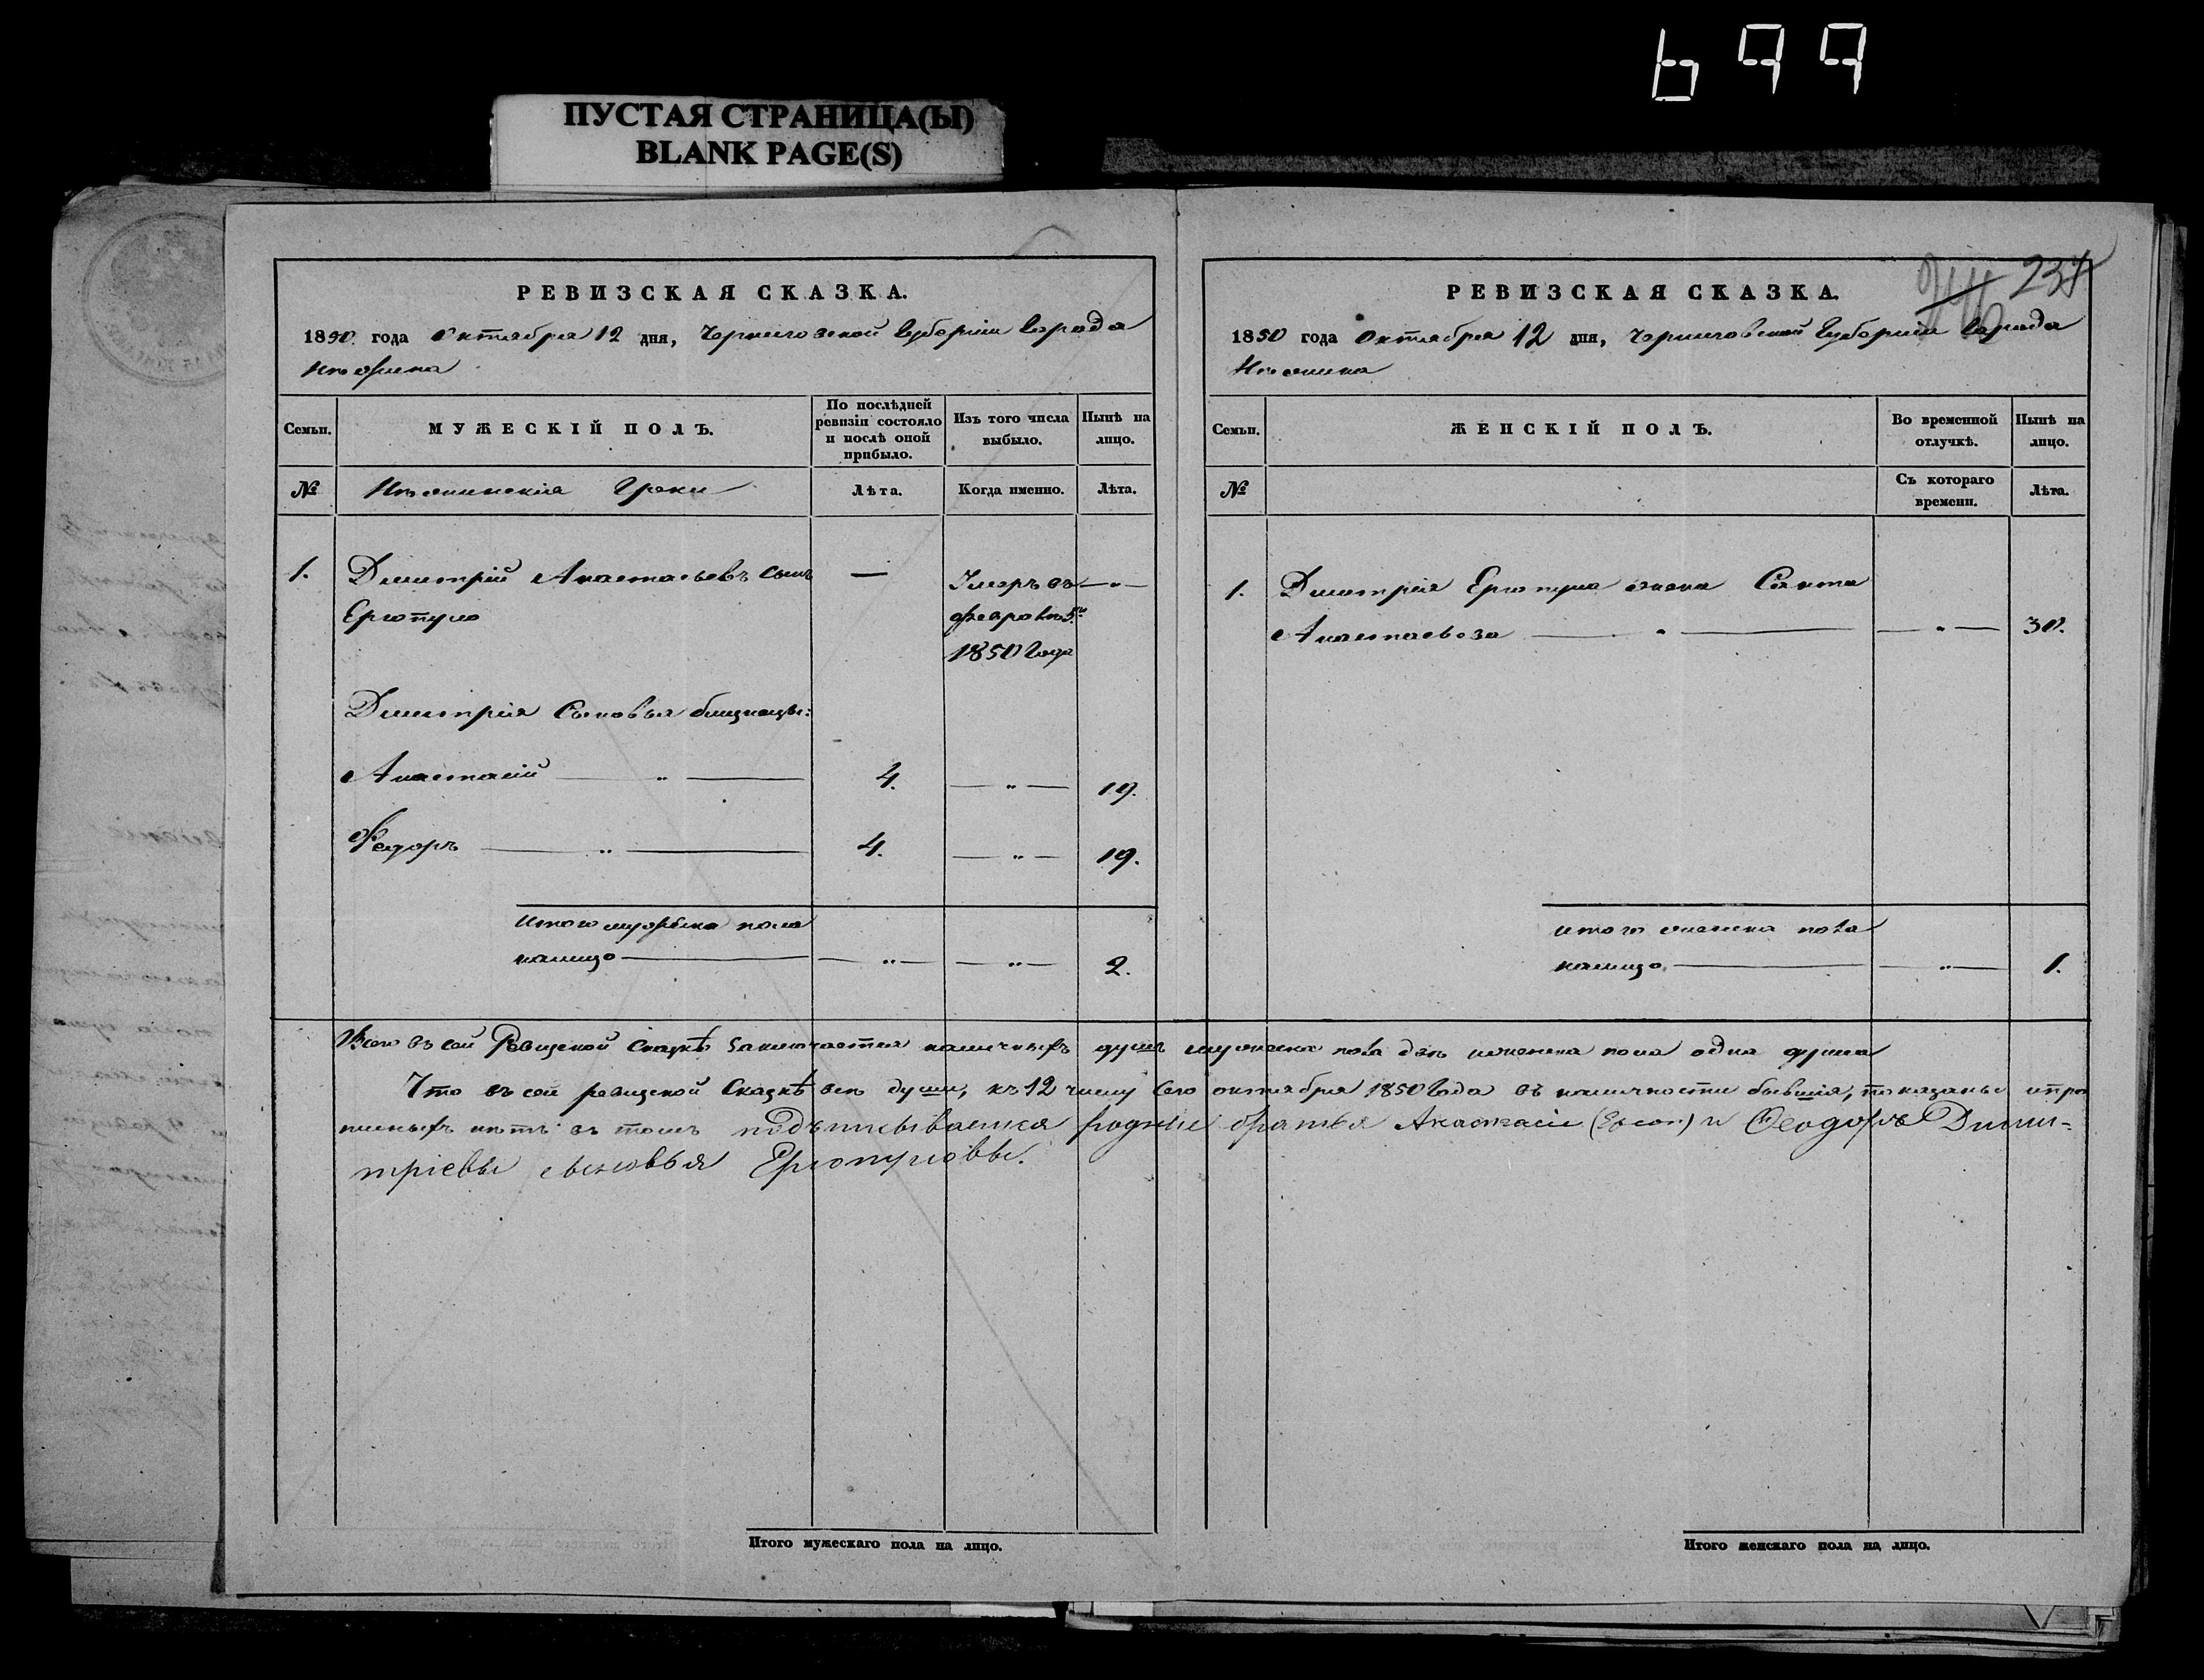 699
ПУСТАЯ СТРАНИЦА(Ы)
BLANK PAGE(S)
РЕВИЗСКАЯ СКАЗКА.
1850 года Октября 12 дня, Черниговской Губерніи Города
Нѣжина
Семьи.
МУЖЕСКІЙ ПОЛЪ.
По послѣдней
ревизіи состояло
и послѣ оной
прибыло.
Изъ того числа
выбыло.
Нынѣ на
лицо.
№
Нѣжинскія Греки
Лѣта.
Когда именно.
Лѣта.
1. Дмитрій Анастасьевъ сынъ — Умеръ въ — " —
Ергопуло 5.
1850 Года
Дмитрія Сыновья близнецы:
Анастасій — " — 4. — " — 19.
Федоръ — " — 4. — " — 19.
Итого мужеска пола
налицо — — " — — " — 2.
РЕВИЗСКАЯ СКАЗКА.
237
1850 года Октября 12 дня, Черниговской Губерніи Города
Нѣжина
Семьи.
ЖЕНСКІЙ ПОЛЪ.
Во временной
отлучкѣ.
Нынѣ на
лицо.
№
Съ котораго
времени.
Лѣта.
1. Дмитрія Ергопула жена
Анастасьева — " — — " — 30.
итого женска пола
налицо — — " — 1.
Всего въ сей Ревизской Сказкѣ заключается наличныхъ душъ мужеска пола двѣ и женска пола одна душа
Что въ сей ревизской Сказкѣ всѣ души, къ 12 числу сего октября 1850 Года въ наличности бывшія, показаны и про
писныхъ нѣтъ въ томъ подъписываемся родные братья Анастасіи и Феодоръ Дими=
тріевы сыновья Ергопуловы.
Итого мужескаго пола на лицо.
Итого женскаго пола на лицо.